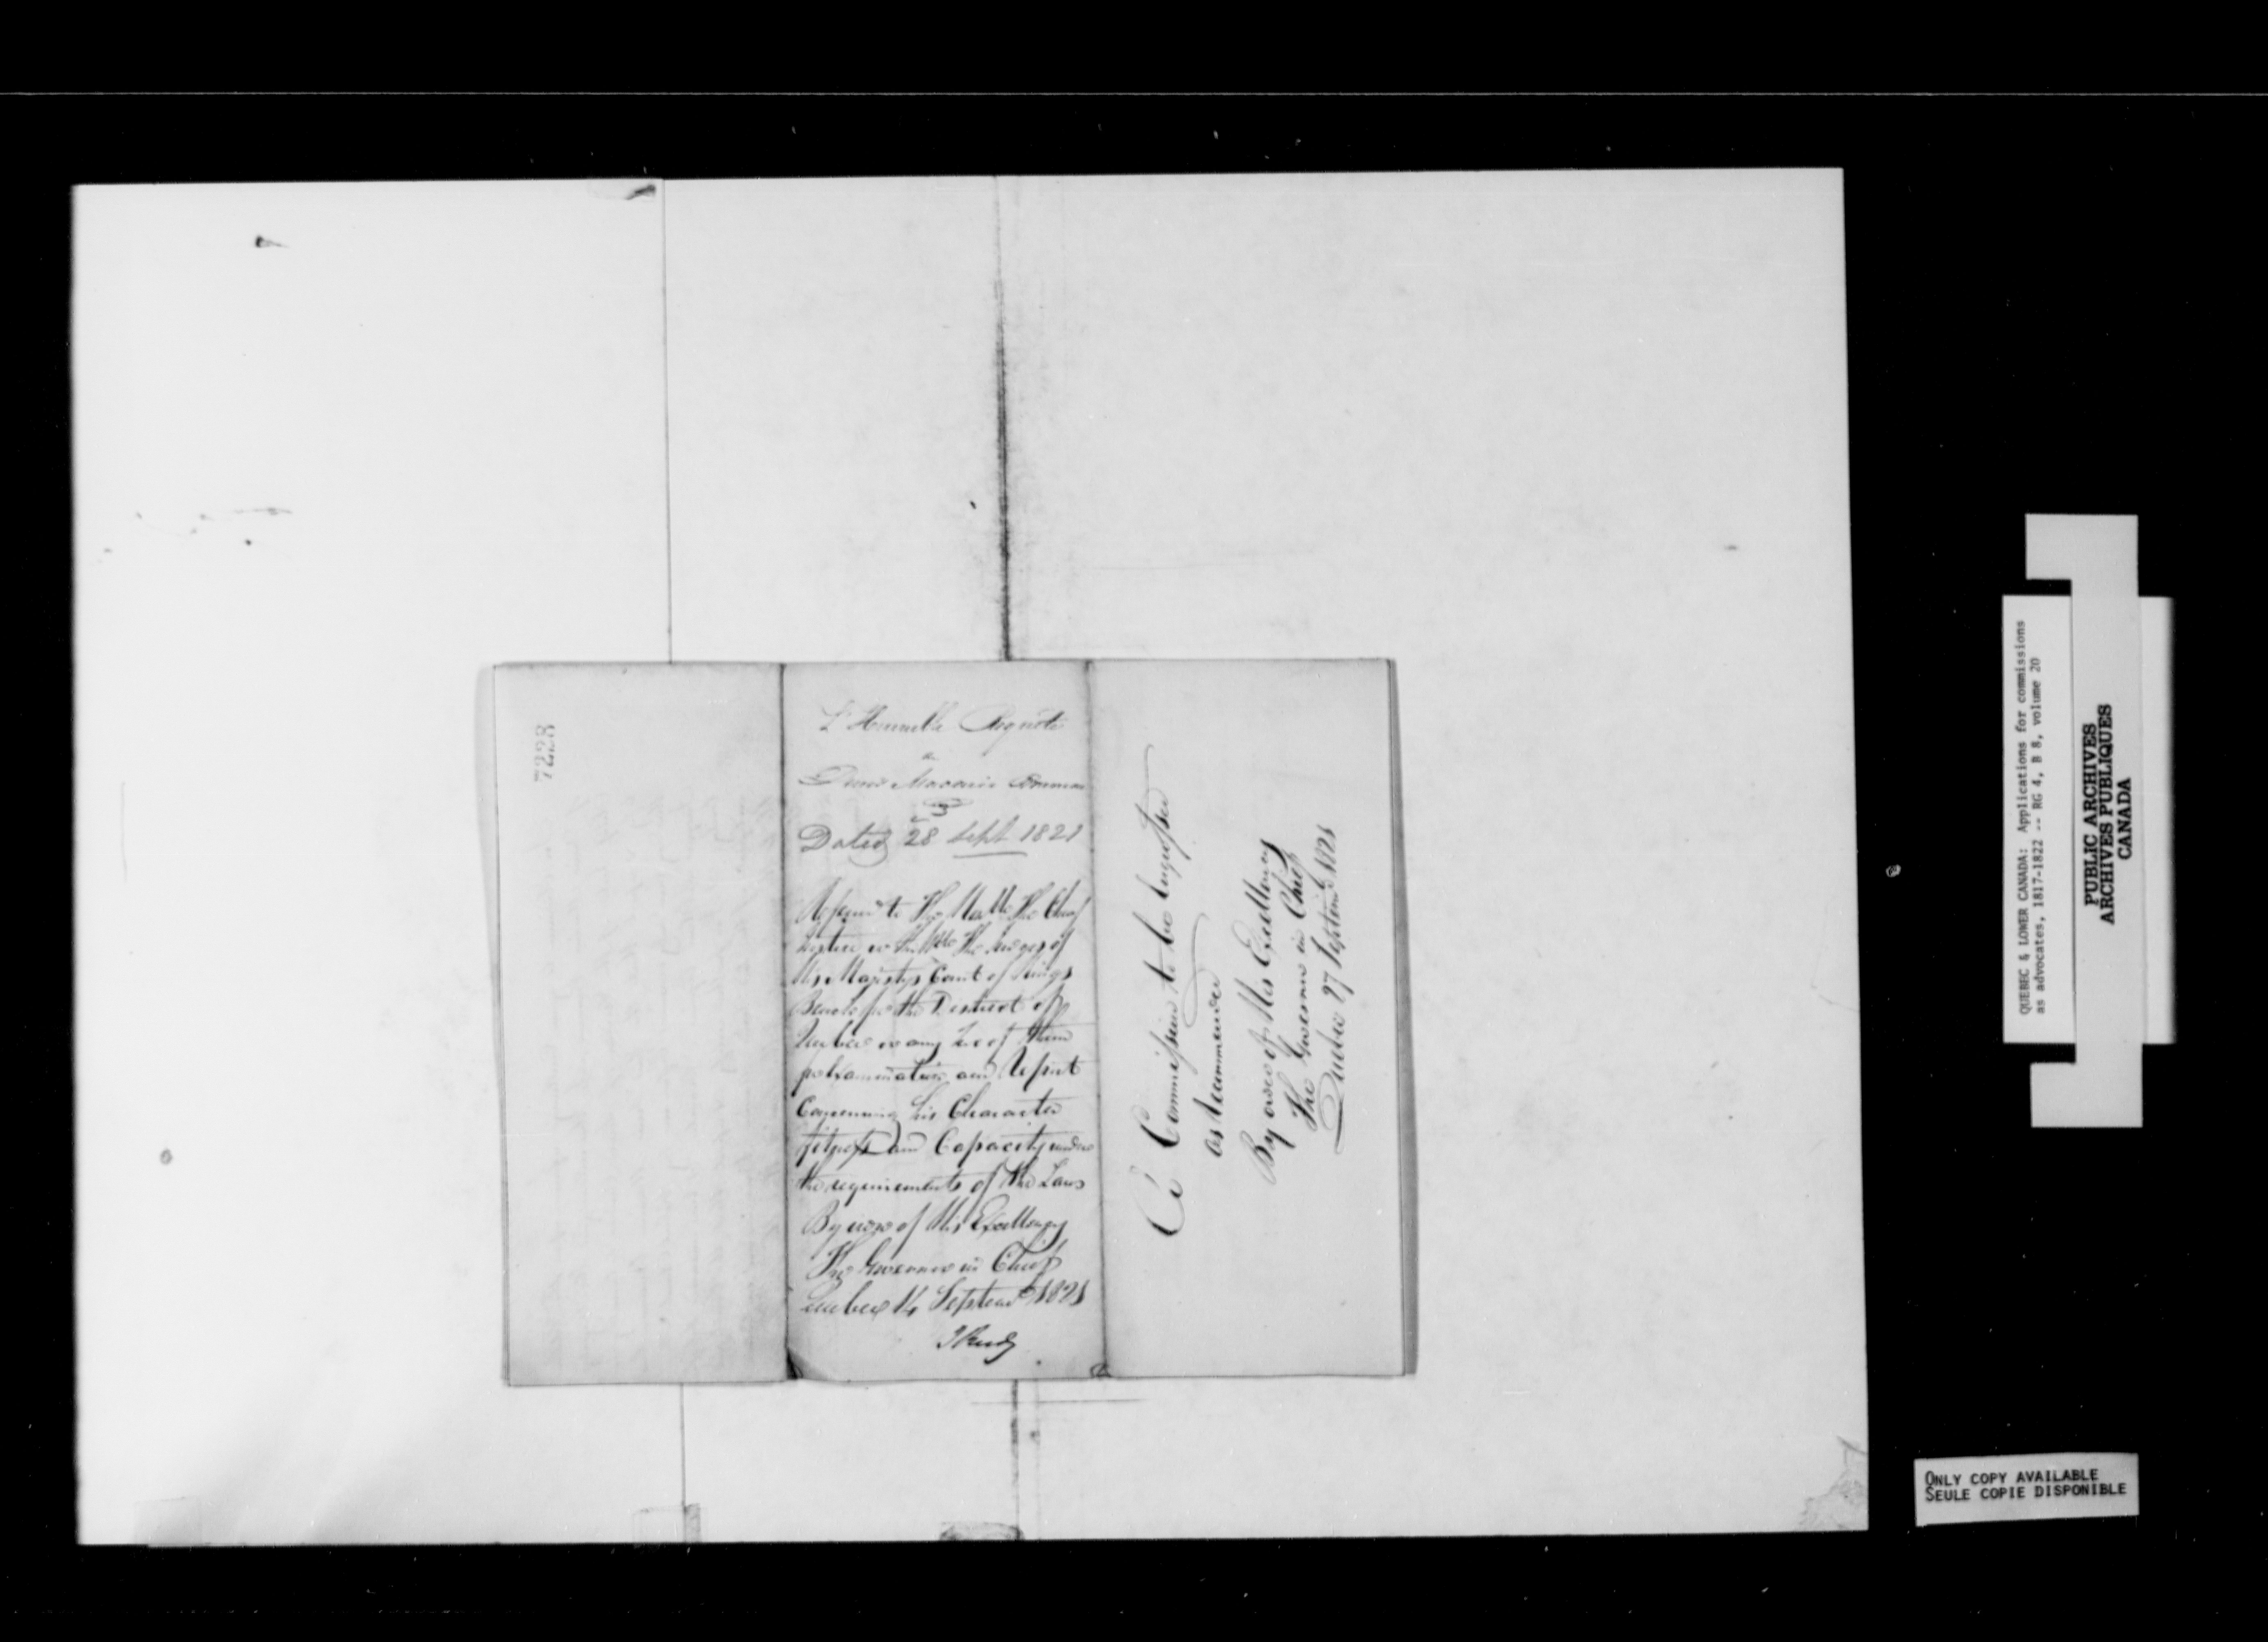 7228
L'Humble Requête
de
Dated 28 Sept 1821
Referred to The Honble The Chief
Justice or the Hble The Judges of
His Majestys Court of Kings
Bench for the District of
Quebec or any two of them
for Examination and Report
Concerning his Character
fitness and Capacity under
the requirements of the Laws
By order of His Excellency
The Governor in Chief
Quebec 14 Septemr 1821
JReady
A Commission to be Engrossed
as Recommended
By order of His Excellency
The Governor in Chief
Quebec 27 Septemr 1821
QUEBEC & LOWER CANADA: Applications for commissions
as advocates, 1817-1822 -- RG 4, B 8, volume 20
PUBLIC ARCHIVES
ARCHIVES PUBLIQUES
CANADA
ONLY COPY AVAILABLE
SEULE COPIE DISPONIBLE